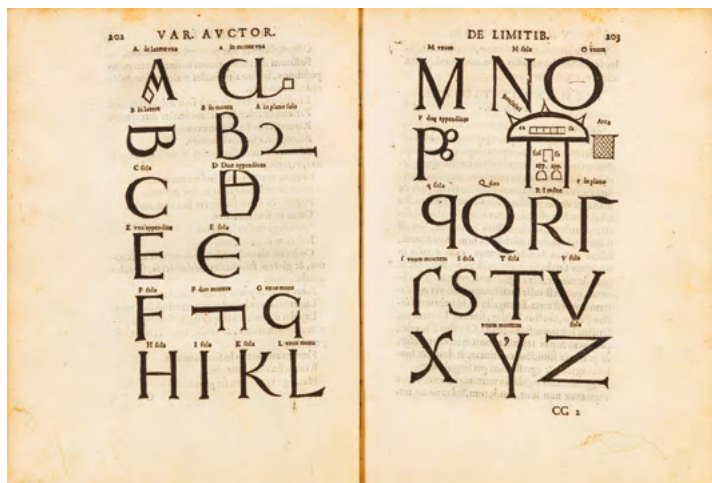 202 VAR. AVCTOR.
A. in latere vna a in monte vna
A a
B in latere B in monte A in plano sola
B B
C sola D Duæ appendices
C D
E vna appendice E. sola
E E
F sola F duo montes G vnus mons
F F q
H sola I sola K sola L vnus mons
H I K L
I
DE LIMITIB. 203
M vnum N sola O vnum
M N O
P duę appendices Arca
P
q sola Q duo R I mōte r in plano
q Q R Γ
ſ vnum montem S sola T sola V sola
ſ S T V
vnum montem sola
X Y Z
CC 2